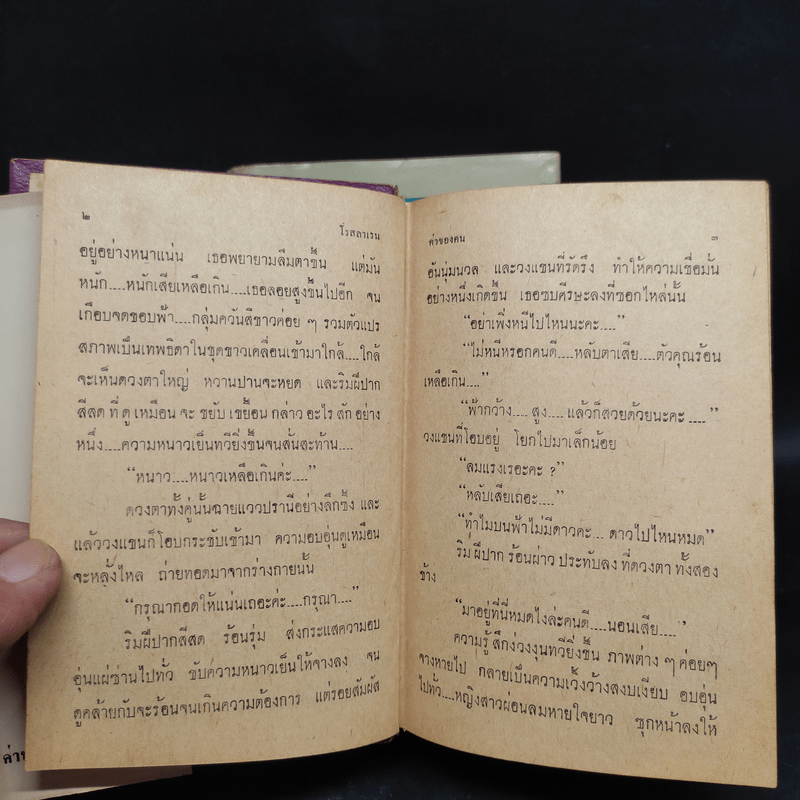 ๒
โรสลาเรน
อยู่อย่างหนาแน่น เธอพยายามลืมตาขึ้น แต่มัน
หนัก....หนักเสียเหลือเกิน....เธอลอยสูงขึ้นไปอีก จน
เกือบจดขอบฟ้า....กลุ่มควันสีขาวค่อย ๆ รวมตัวแปร
สภาพเป็นเทพธิดาในชุดขาวเคลื่อนเข้ามาใกล้....ใกล้
จะเห็นดวงตาใหญ่ หวานปานจะหยด และริมฝีปาก
สีสด ที่ ดู เหมือน จะ ขยับ เขยื้อน กล่าว อะไร สัก อย่าง
หนึ่ง....ความหนาวเย็นทวียิ่งขึ้นจนสั่นสะท้าน....
“หนาว....หนาวเหลือเกินค่ะ....”
ดวงตาทั้งคู่นั้นฉายแววปรานีอย่างลึกซึ้ง และ
แล้ววงแขนก็โอบกระชับเข้ามา ความอบอุ่นดูเหมือน
จะหลั่งไหล ถ่ายทอดมาจากร่างกายนั้น
“กรุณากอดให้แน่นเถอะค่ะ....กรุณา....”
ริมฝีปากสีสด ร้อนรุ่ม ส่งกระแสความอบ
อุ่นแผ่ซ่านไปทั่ว ขับความหนาวเย็นให้จางลง จน
ดูคล้ายกับจะร้อนจนเกินความต้องการ แต่รอยสัมผัส
ค่าของคน
๓
อันนุ่มนวล และวงแขนที่รัดรึง ทำให้ความเชื่อมั่น
อย่างหนึ่งเกิดขึ้น เธอซบศีรษะลงที่ซอกไหล่นั้น
“อย่าเพิ่งหนีไปไหนนะคะ....”
“ไม่หนีหรอกคนดี....หลับตาเสีย....ตัวคุณร้อน
เหลือเกิน....”
“ฟ้ากว้าง.... สูง.... แล้วก็สวยด้วยนะคะ ....”
วงแขนที่โอบอยู่ โยกไปมาเล็กน้อย
“ลมแรงเรอะคะ ?”
“หลับเสียเถอะ....”
“ทำไมบนฟ้าไม่มีดาวคะ... ดาวไปไหนหมด”
ริม ฝีปาก ร้อนผ่าว ประทับลง ที่ดวงตา ทั้งสอง
ข้าง
“มาอยู่ที่นี่หมดไงล่ะคนดี....นอนเสีย....”
ความรู้ สึกง่วงงุนทวียิ่งขึ้น ภาพต่าง ๆ ค่อยๆ
จางหายไป กลายเป็นความเวิ้งว้างสงบเงียบ อบอุ่น
ไปทั่ว....หญิงสาวผ่อนลมหายใจยาว ซุกหน้าลงให้